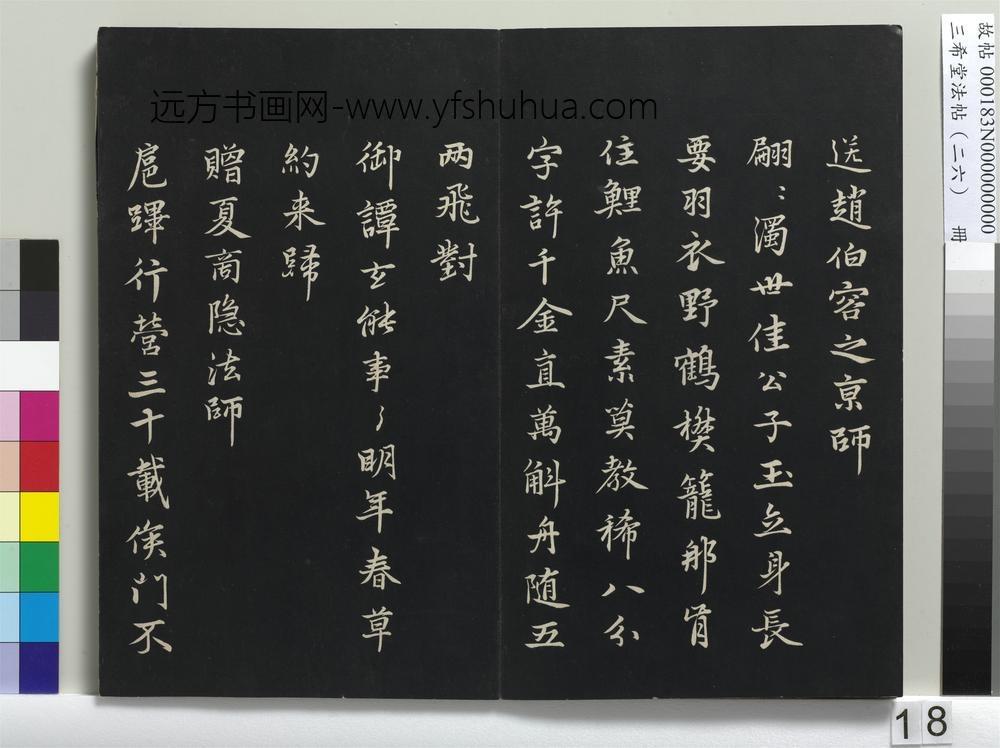 送趙伯容之京師
翩〻濁世佳公子玉立身長
要羽衣野鶴樊籠那肯
住鯉魚尺素莫教稀八分
字許千金直萬斛舟隨五
两飛對
御譚玄能事了明年春草
約来歸
贈夏商隐法師
扈蹕行營三十載侯门不
远方书画网-www.yfshuhua.com
故帖 000183N000000000
三希堂法帖（二六） 冊
18